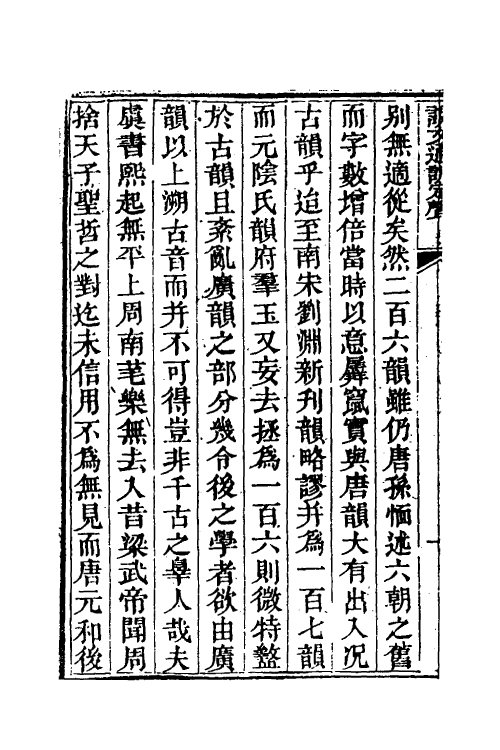 別無適從矣然二百六韻雖仍唐孫愐述六朝之舊
而字數增倍當時以意羼竄實與唐韻大有出入况
古韻乎迨至南宋劉淵新刊韻略謬并爲一百七韻
而元陰氏韻府羣玉又妄去拯爲一百六則微特盭
於古韻且紊亂廣韻之部分幾令後之學者欲由廣
韻以上溯古音而并不可得豈非千古之辠人哉夫
虞書熙起無平上周南芼樂無去入昔梁武帝聞周
捨天子聖哲之對迄未信用不爲無見而唐元和後